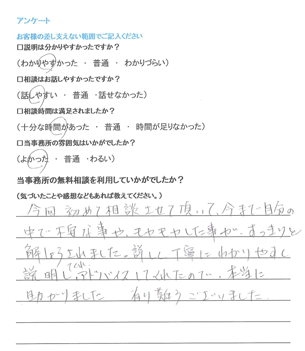 アンケート
お客様の差し支えない範囲でご記入ください
口説明は分かりやすかったですか?
(わかりやすかった ・ 普通 ・ わかりづらい)
口相談はお話しやすかったですか?
(話しやすい ・ 普通 ・話せなかった)
口相談時間は満足されましたか?
(十分な時間があった ・ 普通 ・ 時間が足りなかった)
口当事務所の雰囲気はいかがでしたか?
(よかった ・ 普通 ・わるい)
当事務所の無料相談を利用していかがでしたか?
(気づいたことや感想などもあれば教えてください。)
今回初めて相談させて頂いて、今まで自分の
中で不安な事や、モヤモヤした事が、すっきりと
解しょうされました。詳しく丁寧にわかりやすく
説明してくれ、アドバイスしてくれたので、本当に
助かりました 有り難うございました。